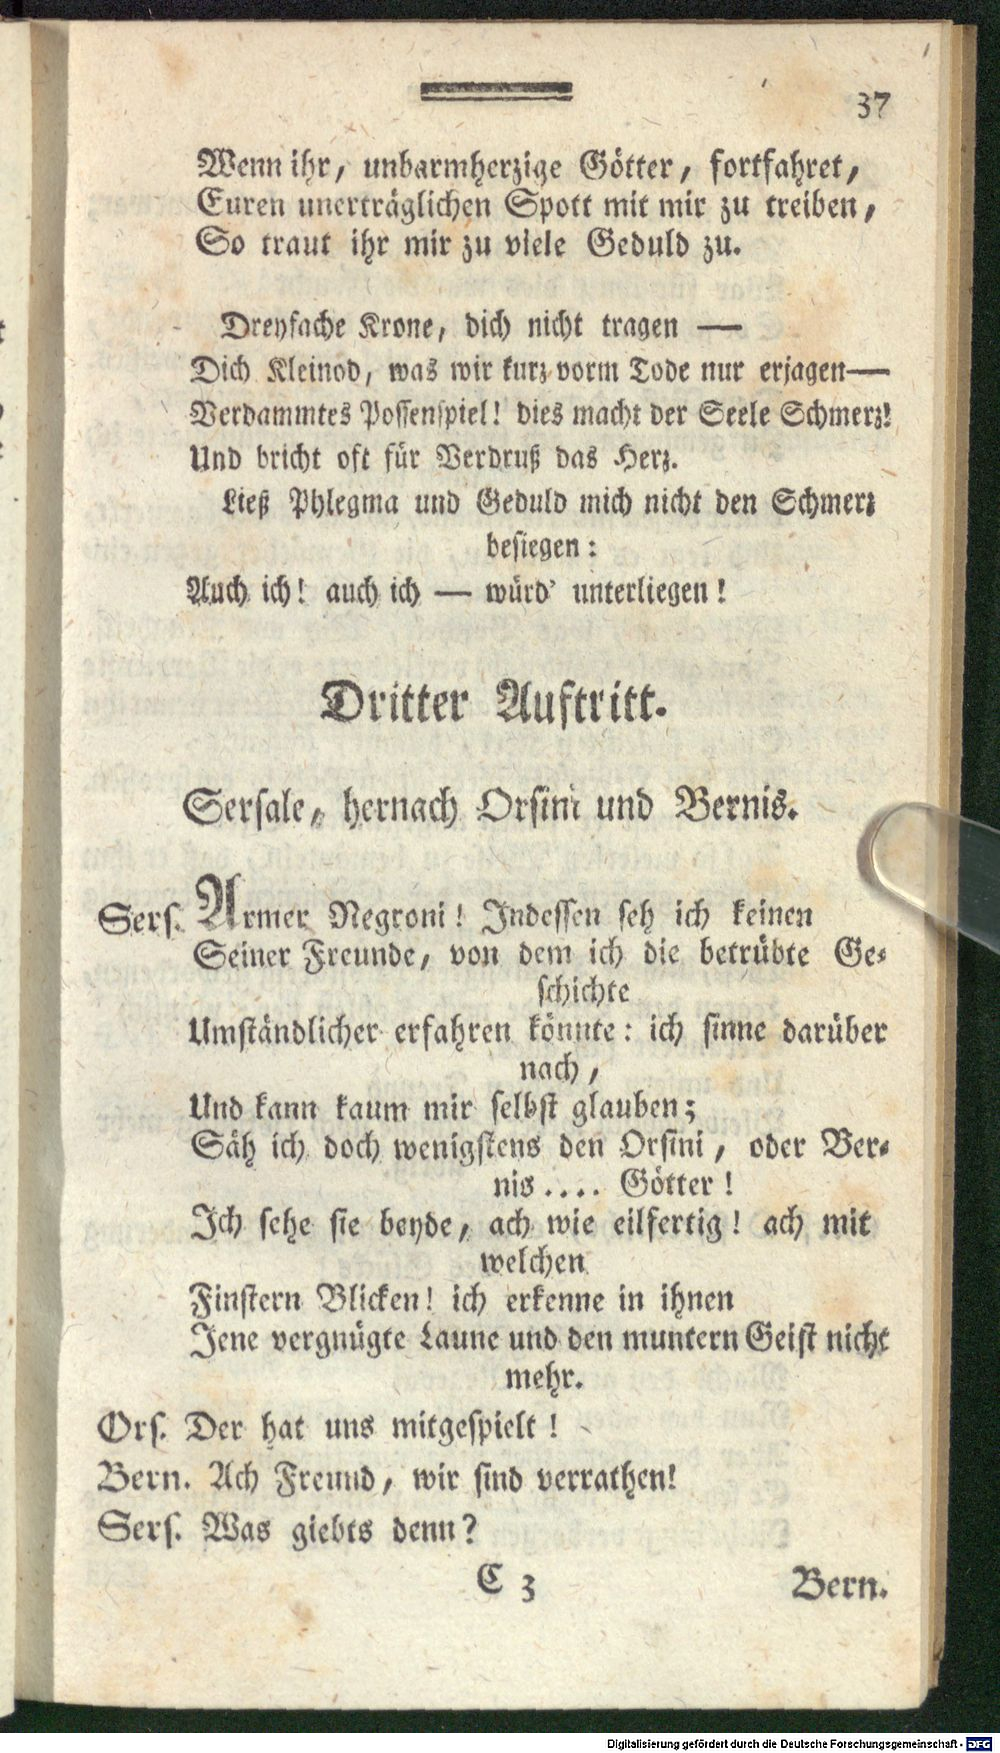 37
Wenn ihr, unbarmherzige Götter, fortfahret,
Euren unerträglichen Spott mit mir zu treiben,
So traut ihr mir zu viele Geduld zu.
Dreyfache Krone, dich nicht tragen —
Dich Kleinod, was wir kurz vorm Tode nur erjagen—
Verdammtes Possenspiel! dies macht der Seele Schmerz!
Und bricht oft für Verdruß das Herz.
Ließ Phlegma und Geduld mich nicht den Schmerz
besiegen:
Auch ich! auch ich — würd' unterliegen!
Dritter Auftritt.
Sersale, hernach Orsini und Bernis.
Sers. Armer Negroni! Indessen seh ich keinen
Seiner Freunde, von dem ich die betrübte Ge-
schichte
Umständlicher erfahren könnte: ich sinne darüber
nach,
Und kann kaum mir selbst glauben;
Säh ich doch wenigstens den Orsini, oder Ber-
nis.... Götter!
Ich sehe sie beyde, ach wie eilfertig! ach mit
welchen
Finstern Blicken! ich erkenne in ihnen
Jene vergnügte Laune und den muntern Geist nicht
mehr.
Ors. Der hat uns mitgespielt!
Bern. Ach Freund, wir sind verrathen!
Sers. Was giebts denn?
C 3
Bern.
Digitalisierung gefördert durch die Deutsche Forschungsgemeinschaft - DFG